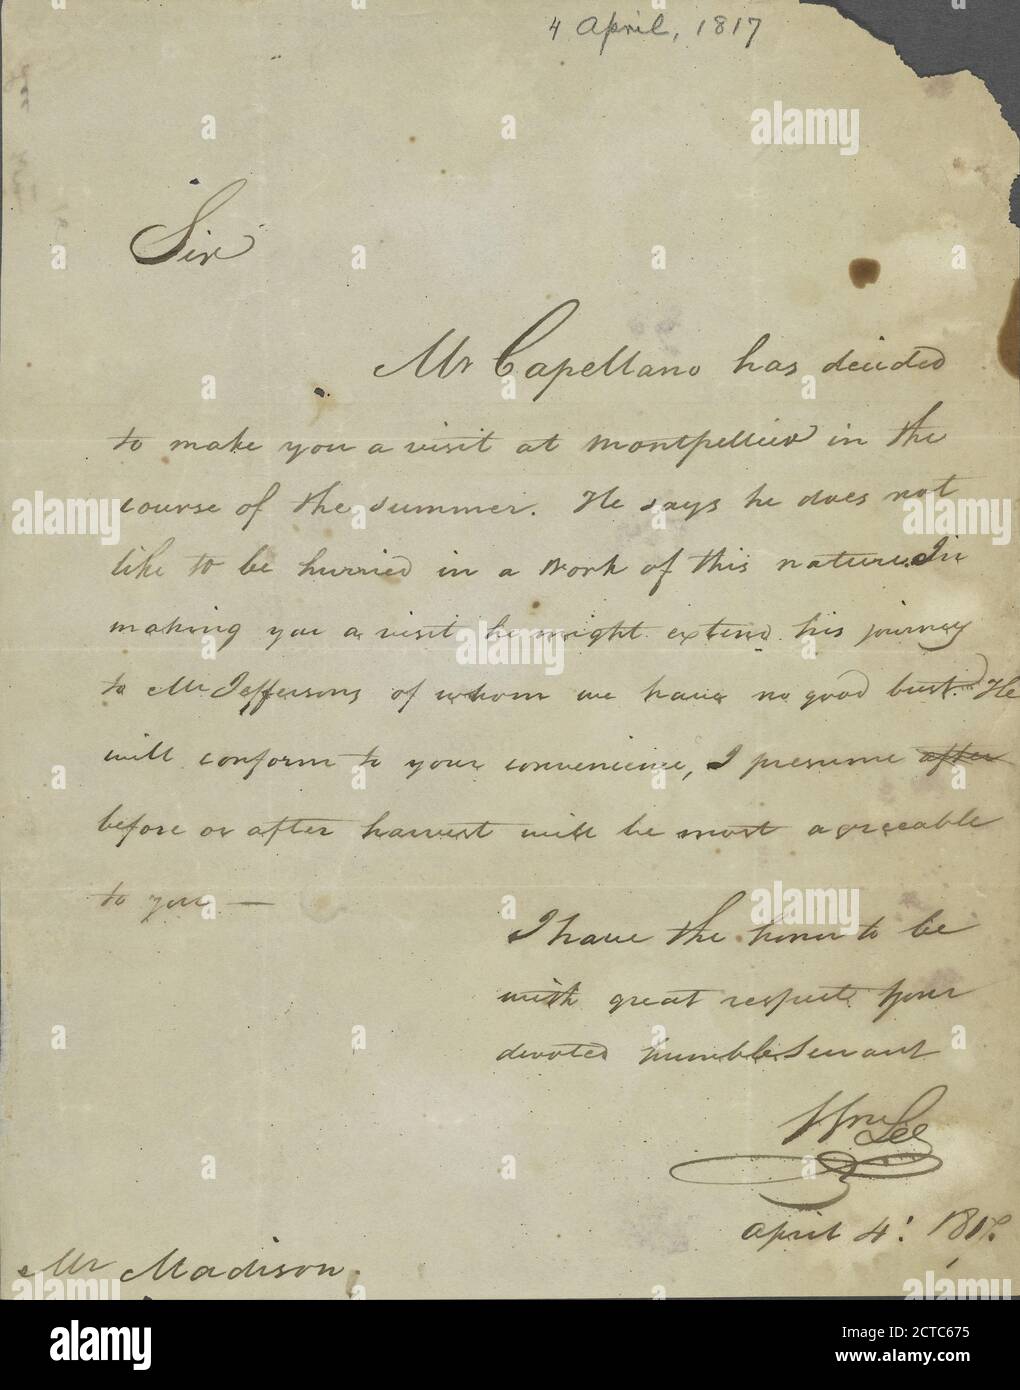 4 April, 1817
Sir
Mr Capellano has decided
to make you a visit at Montpellier in the
course of the summer. He says he does not
like to be hurried in a work of this nature. In
making you a visit he might extend his journey
to Mr Jeffersons of whom we have no good bust. He
will conform to your convenience, I presume after
before or after harvest will be most agreeable
to you —
I have the honor to be
with great respect your
devoted humble Servant
Wm Lee
April 4: 1817.
Mr Madison.
alamy
Image ID: 2CTC675
www.alamy.com